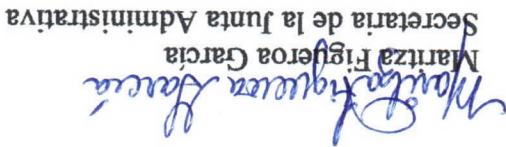 Maritza Figueroa García
Maritza Figueroa García
Secretaria de la Junta Administrativa